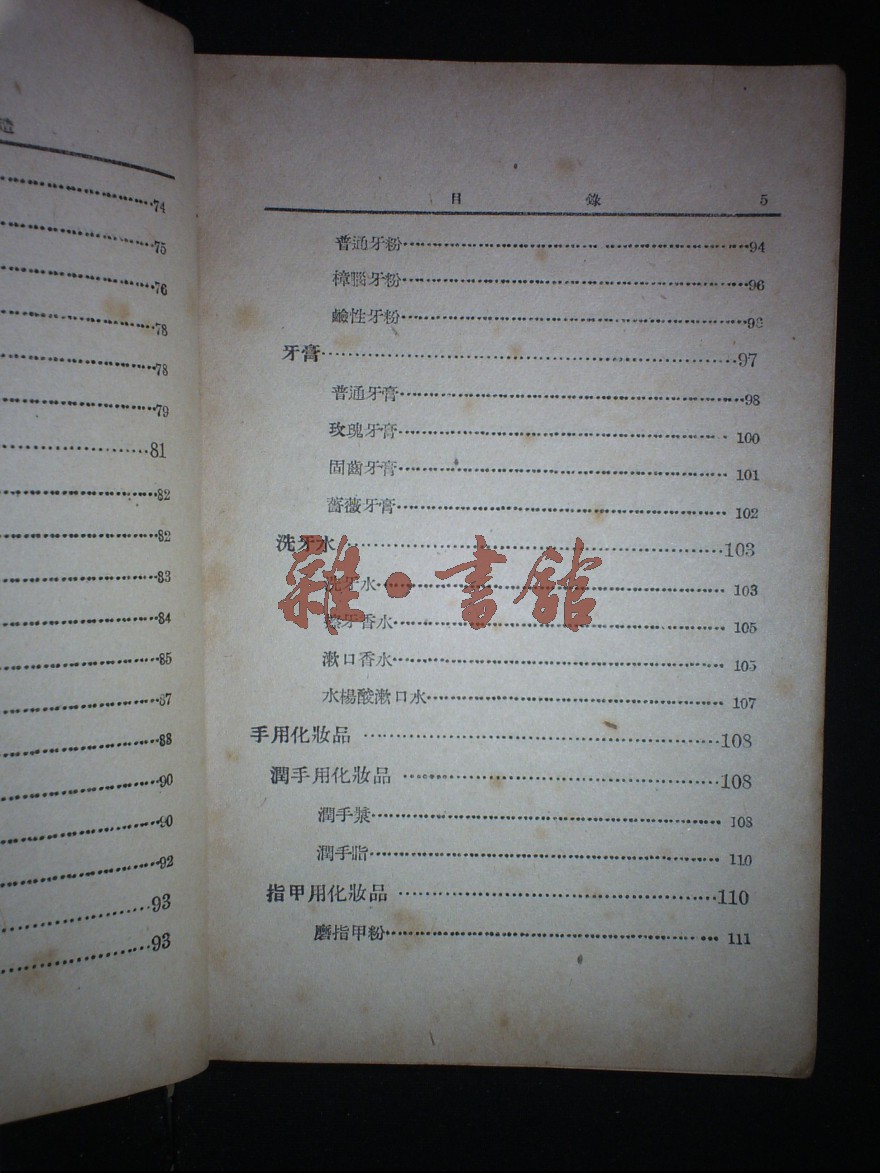 造
74
75
76
78
78
79
81
82
82
83
84
85
87
88
90
90
92
93
93
目 錄 5
普通牙粉 94
樟腦牙粉 96
鹼性牙粉 96
牙膏 97
普通牙膏 98
玫瑰牙膏 100
固齒牙膏 101
薔薇牙膏 102
洗牙水 103
洗牙水 103
牙香水 105
漱口香水 105
水楊酸漱口水 107
手用化妝品 108
潤手用化妝品 108
潤手漿 108
潤手脂 110
指甲用化妝品 110
磨指甲粉 111
雜·書館